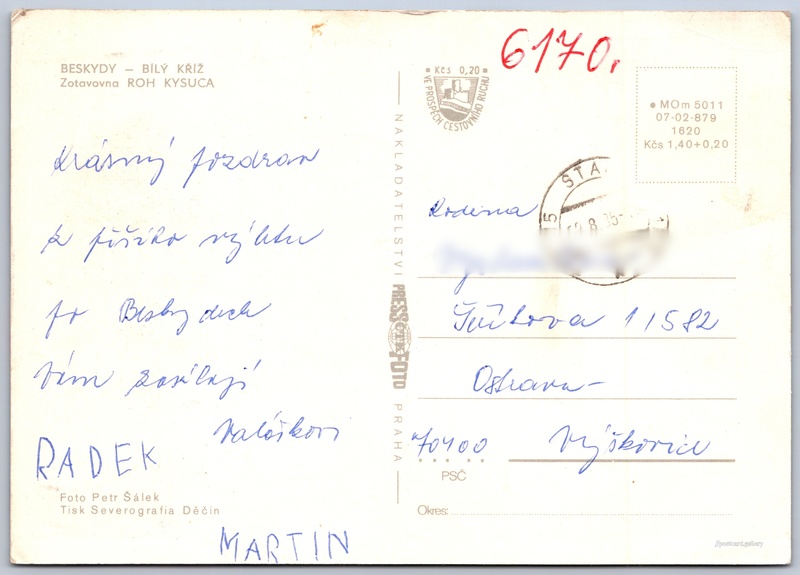 BESKYDY — BÍLÝ KŘÍŽ
Zotavovna ROH KYSUCA
Krásný pozdrav
z pěšího výletu
po Beskydech
Vám zasílají
Valáškovi
RADEK
MARTIN
Foto Petr Šálek
Tisk Severografia Děčín
NAKLADATELSTVÍ PRESSFOTO PRAHA
ČTK
6170.
Kčs 0,20
VE PROSPĚCH CESTOVNÍHO RUCHU
MOm 5011
07-02-879
1620
Kčs 1,40+0,20
Rodina
11582
Ostrava-
70400 Výškovice
PSČ
Okres: